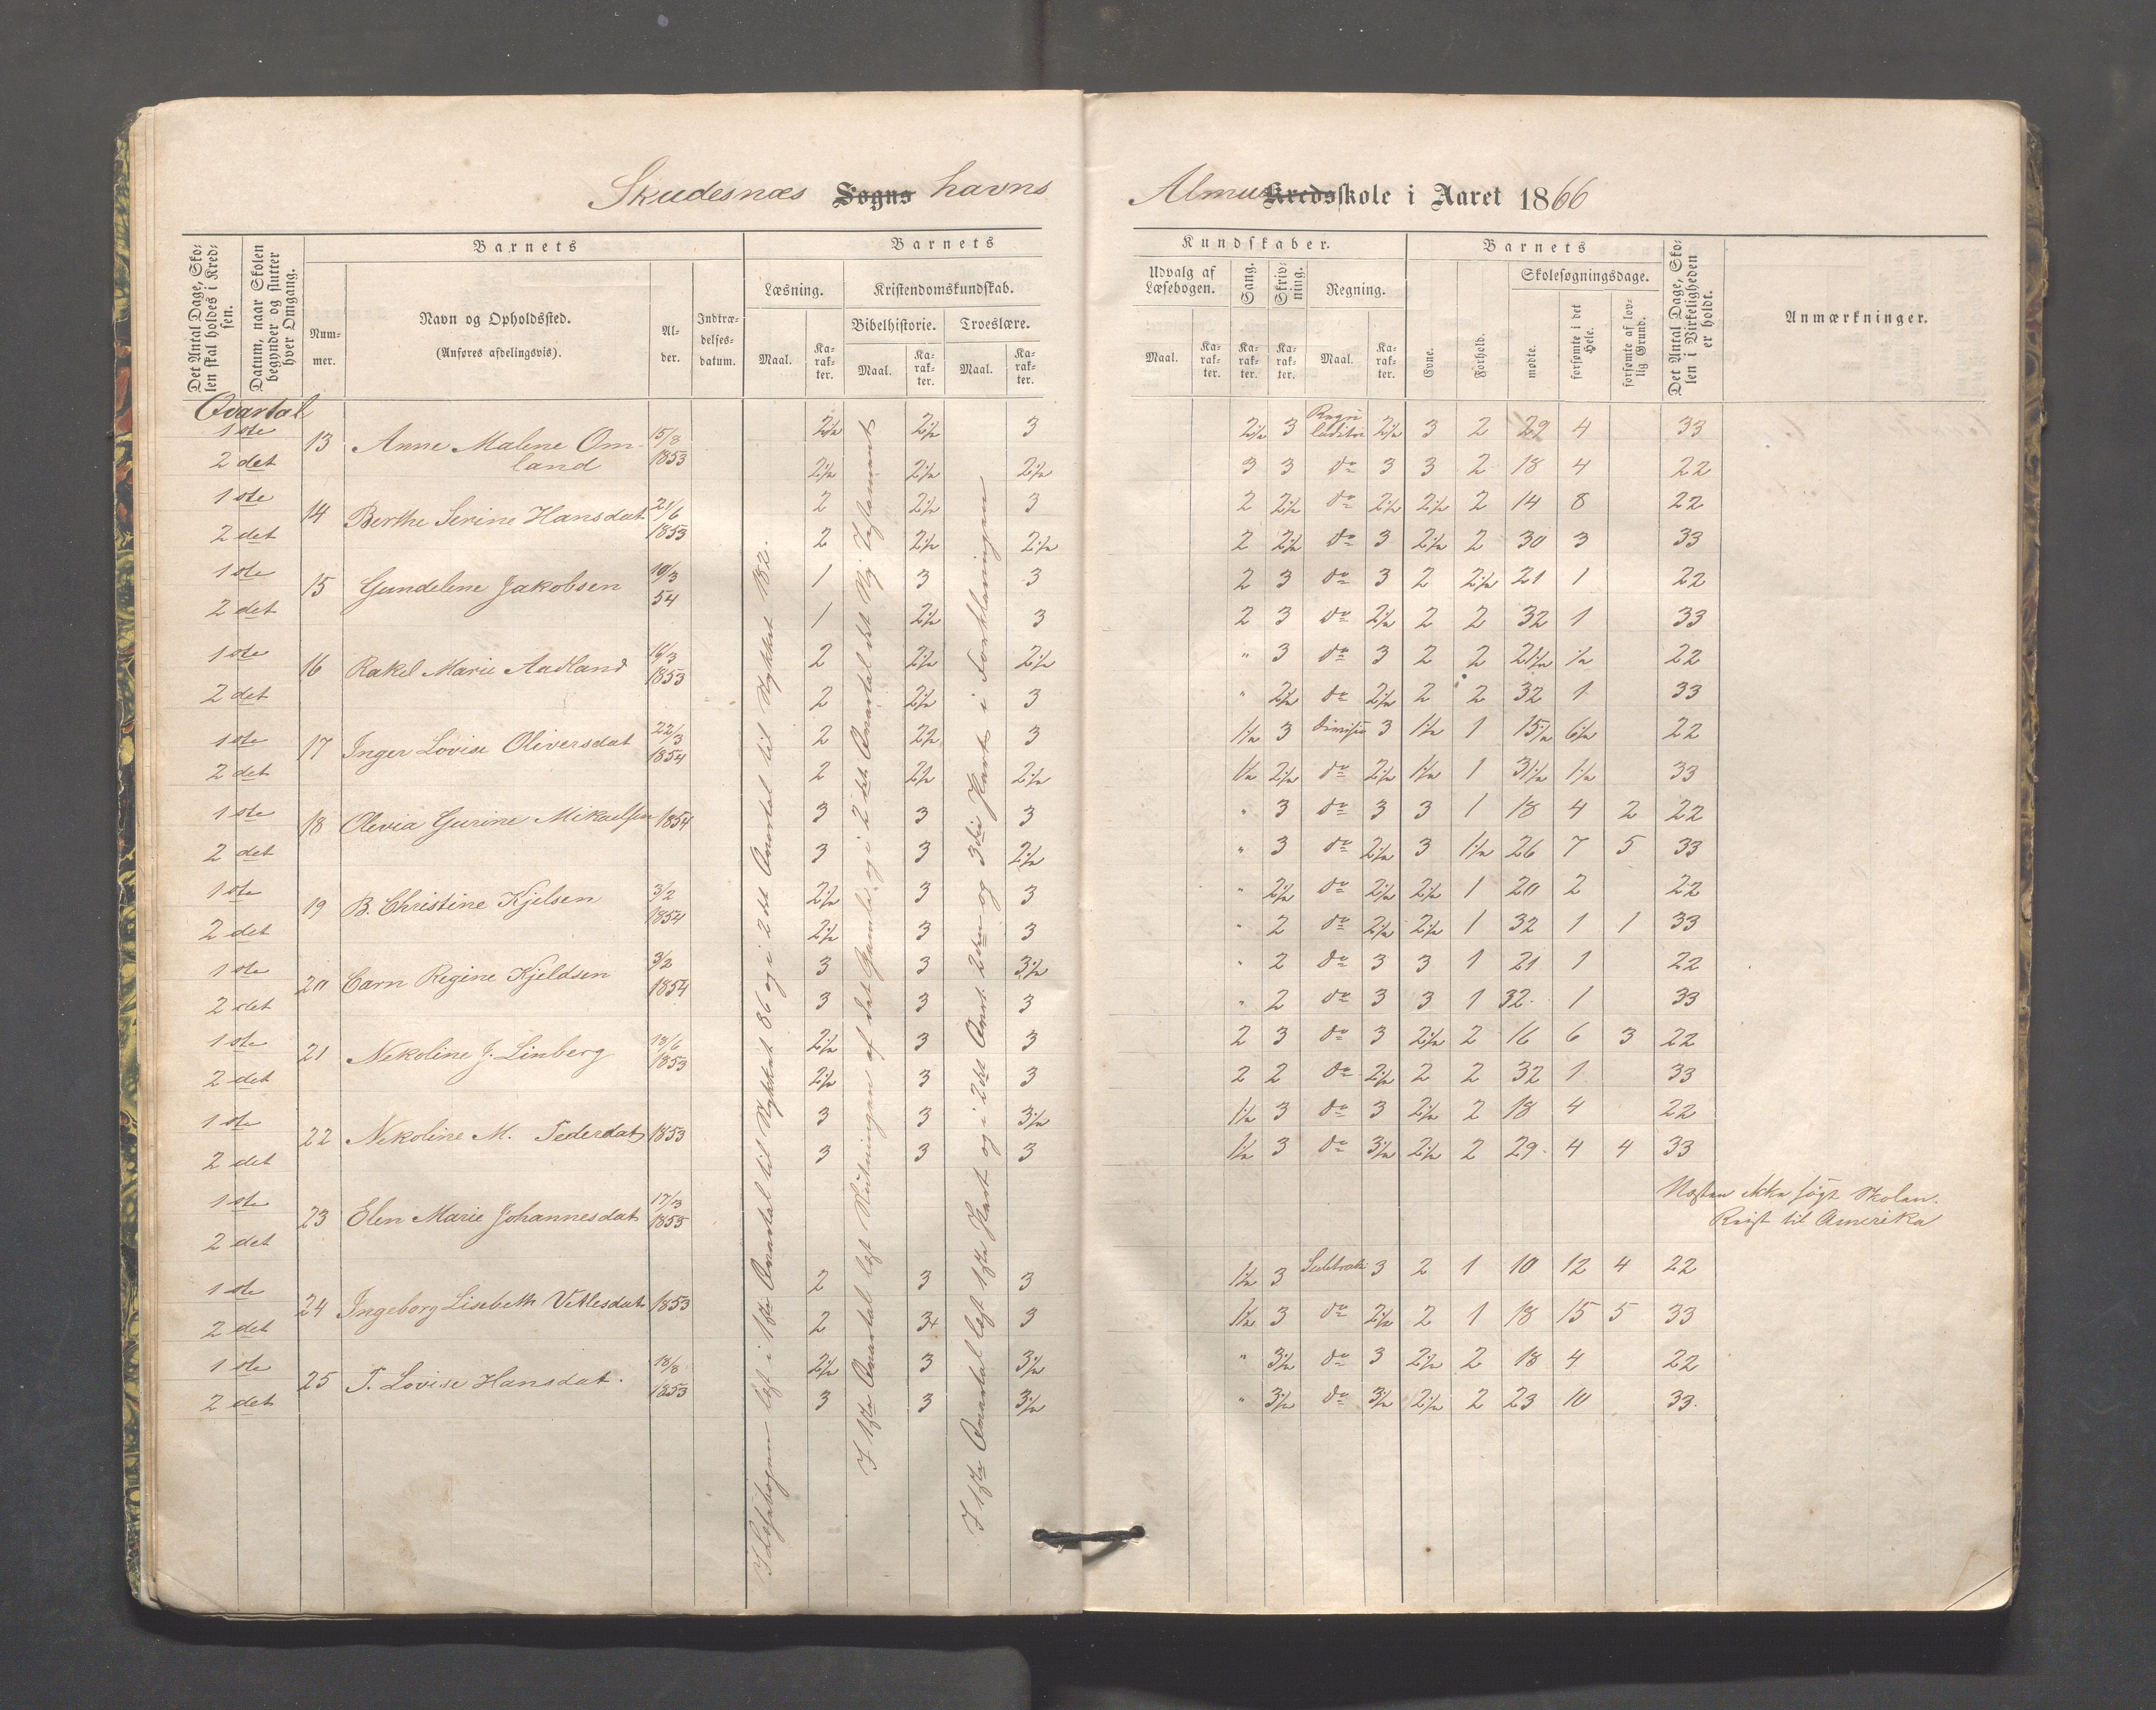 Skudesnæs Sogns havns
Almue Kredsskole i Aaret 1866
Det Antal Dage, Skolen skal holdes i Kredsen.
Datum, naar Skolen begynder og slutter hver Omgang.
Barnets
Nummer.
Navn og Opholdssted.
(Anføres afdelingsvis).
Alder.
Indtrædelsesdatum.
Barnets
Læsning.
Kristendomskundskab.
Bibelhistorie.
Troeslære.
Maal.
Karakter.
Maal.
Karakter.
Maal.
Karakter.
Kundskaber.
Udvalg af Læsebogen.
Sang.
Skrivning.
Regning.
Maal.
Karakter.
Karakter.
Karakter.
Maal.
Karakter.
Barnets
Evne.
Forhold.
Skolesøgningsdage.
mødte.
forsømte i det Hele.
forsømte af lovlig Grund.
Det Antal Dage, Skolen i Virkeligheden er holdt.
Anmærkninger.
Qvartal
1ste 13 Anne Malene Omland 15/8 1853 2 1/2 2 1/2 3 2 1/2 3 2 1/2 3 2 29 4 33
2det 2 1/2 2 1/2 2 1/2 3 3 do 3 3 2 18 4 22
1ste 14 Berthe Serine Hansdat 21/6 1853 2 2 1/2 3 2 2 1/2 do 2 1/2 2 1/2 2 14 8 22
2det 2 2 1/2 2 1/2 2 2 1/2 do 3 2 1/2 2 30 3 33
1ste 15 Gundelene Jakobsen 10/3 54 1 3 3 2 3 do 3 2 2 1/2 21 1 22
2det 1 2 1/2 3 2 3 do 2 1/2 2 2 32 1 33
1ste 16 Rakel Marie Aadland 16/3 1853 2 2 1/2 2 1/2 " 3 do 3 2 2 21 1/2 1/2 22
2det 2 2 1/2 3 " 2 1/2 do 2 1/2 2 2 32 1 33
1ste 17 Inger Lovise Oliversdat 22/3 1854 2 2 1/2 3 1 1/2 3 Divisio 3 1 1/2 1 15 1/2 6 1/2 22
2det 2 2 1/2 2 1/2 1 1/2 2 1/2 do 2 1/2 1 1/2 1 31 1/2 1 1/2 33
1ste 18 Olevia Gurine Mikaelsen 1854 3 3 3 " 3 do 3 3 1 18 4 2 22
2det 3 3 2 1/2 " 3 do 2 1/2 3 1 1/2 26 7 5 33
1ste 19 B. Christine Kjelsen 3/2 1854 2 1/2 3 3 " 2 1/2 do 2 1/2 2 1/2 1 20 2 22
2det 2 1/2 3 3 " 2 do 2 1/2 2 1/2 1 32 1 1 33
1ste 20 Carn Regine Kjeldsen 3/2 1854 3 3 3 1/2 " 2 do 3 3 1 21 1 22
2det 3 3 3 " 2 do 3 3 1 32 1 33
1ste 21 Nekoline J. Linberg 13/6 1853 2 1/2 3 3 2 3 do 3 2 1/2 2 16 6 3 22
2det 2 1/2 3 3 2 2 do 2 1/2 2 2 32 1 33
1ste 22 Nekoline M. Pedersdat 1853 3 3 3 1/2 1 1/2 3 do 3 2 1/2 2 18 4 22
2det 3 3 3 1 1/2 3 do 3 1/2 2 1/2 2 29 4 4 33
1ste 23 Elen Marie Johannesdat 17/3 1855 Næsten ikke søgt Skolen.
2det Reist til Amerika
1ste 24 Ingeborg Lisebeth Vetlesdat 1853 2 3 3 1 1/2 3 Subtrak: 3 2 1 10 12 4 22
2det 2 3+ 3 1 1/2 3 do 2 1/2 2 1 18 15 5 33
1ste 25 T. Lovise Hansdat. 18/8 1853 2 1/2 3 3 1/2 " 3 1/2 do 3 2 1/2 2 18 4 22
2det 3 3 3 1/2 " 3 1/2 do 3 1/2 2 1/2 2 23 10 33.
I Læsebogen læst i 1ste Qvartal til Stykket 86 og i 2det Qvartal til Stykket 182.
I 1ste Qvartal læst Slutningen af det Gamle og i 2det Qvartal det Ny Testament
I 1ste Qvartal læst 1ste Part og i 2det Qvart. 2den og 3die Part i Forklaringen